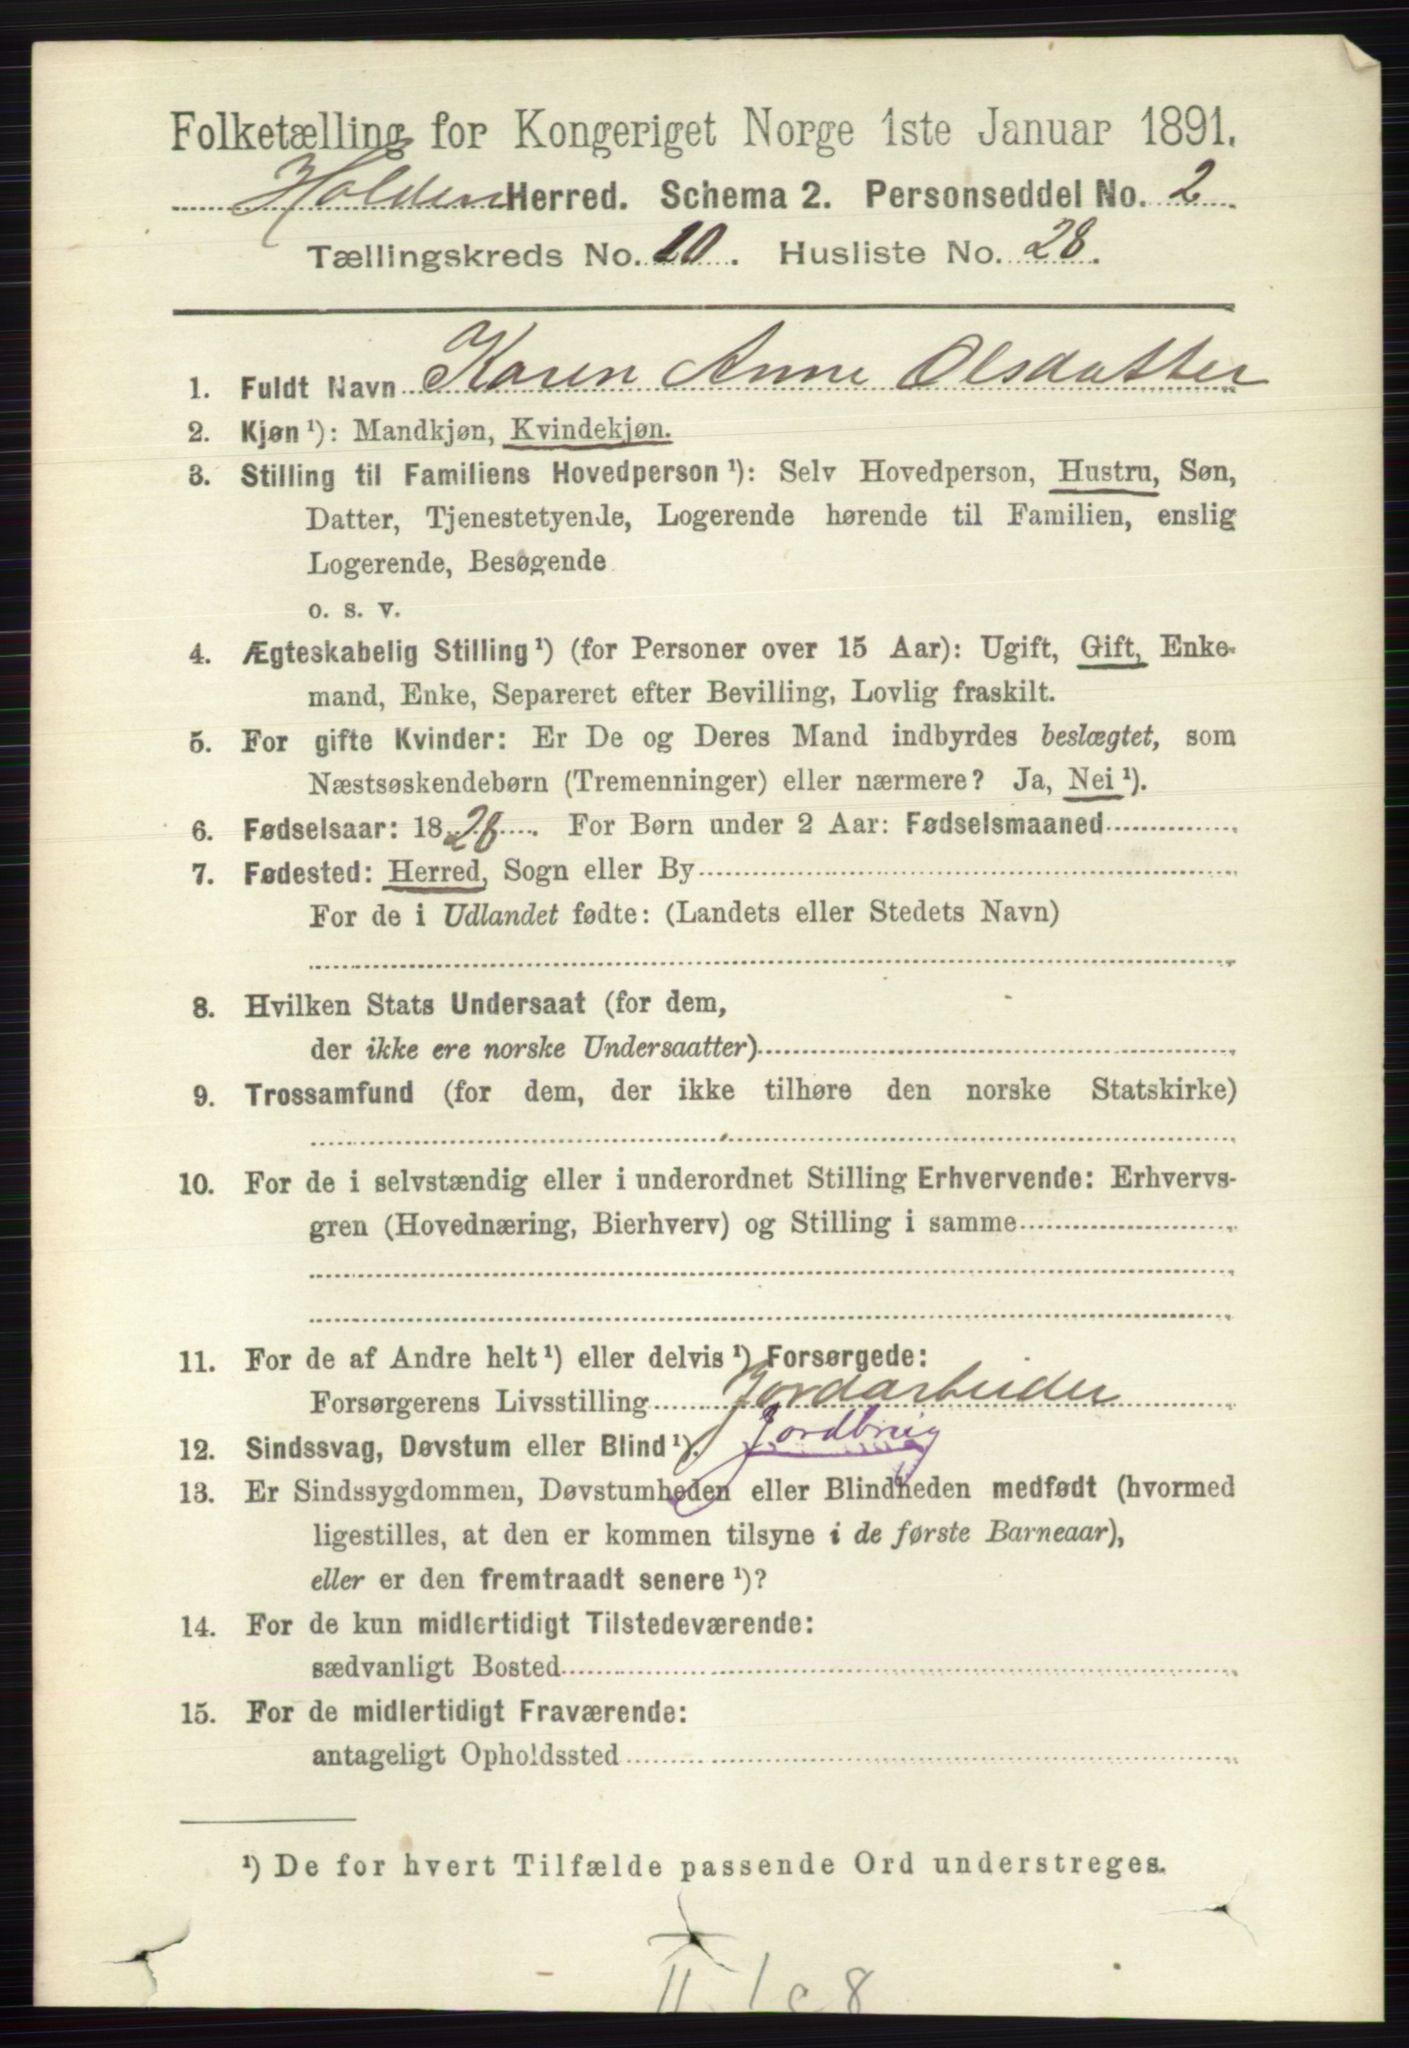 Folketælling for Kongeriget Norge 1ste Januar 1891.
Holden Herred. Schema 2. Personseddel No. 2
Tællingskreds No. 10. Husliste No. 28.
1. Fuldt Navn Karen Anne Olsdatter
2. Kjøn ¹): Mandkjøn, Kvindekjøn.
3. Stilling til Familiens Hovedperson ¹): Selv Hovedperson, Hustru, Søn,
Datter, Tjenestetyende, Logerende hørende til Familien, enslig
Logerende, Besøgende
o. s. v.
4. Ægteskabelig Stilling ¹) (for Personer over 15 Aar): Ugift, Gift, Enke-
mand, Enke, Separeret efter Bevilling, Lovlig fraskilt.
5. For gifte Kvinder: Er De og Deres Mand indbyrdes beslægtet, som
Næstsøskendebørn (Tremenninger) eller nærmere? Ja, Nei ¹).
6. Fødselsaar: 1828. For Børn under 2 Aar: Fødselsmaaned
7. Fødested: Herred, Sogn eller By
For de i Udlandet fødte: (Landets eller Stedets Navn)
8. Hvilken Stats Undersaat (for dem,
der ikke ere norske Undersaatter)
9. Trossamfund (for dem, der ikke tilhøre den norske Statskirke)
10. For de i selvstændig eller i underordnet Stilling Erhvervende: Erhvervs-
gren (Hovednæring, Bierhverv) og Stilling i samme
11. For de af Andre helt ¹) eller delvis ¹) Forsørgede:
Forsørgerens Livsstilling Jordarbeider
12. Sindssvag, Døvstum eller Blind ¹). Jordbrug
13. Er Sindssygdommen, Døvstumheden eller Blindheden medfødt (hvormed
ligestilles, at den er kommen tilsyne i de første Barneaar),
eller er den fremtraadt senere ¹)?
14. For de kun midlertidigt Tilstedeværende:
sædvanligt Bosted
15. For de midlertidigt Fraværende:
antageligt Opholdssted
¹) De for hvert Tilfælde passende Ord understreges.